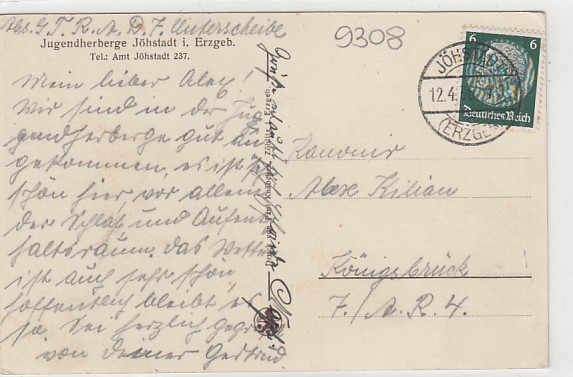 Abs. G. T. R. A. D. 7. Unterscheibe
Jugendherberge Jöhstadt i. Erzgeb.
Tel.: Amt Jöhstadt 237.
Mein lieber Alex!
Wir sind in der Ju-
gendherberge gut an-
gekommen, es ist sehr
schön hier vor allem
der Schlaf und Aufent-
haltsraum. das Wetter
ist auch sehr schön,
hoffentlich bleibt es
so. Sei herzlich gegrüßt
von Deiner Gertrud.
9308
JÖHSTADT
12.4.
(ERZGEB)
6 6
Deutsches Reich
Kanonier
Alex Kilian
Königsbrück
7./A.R.4.